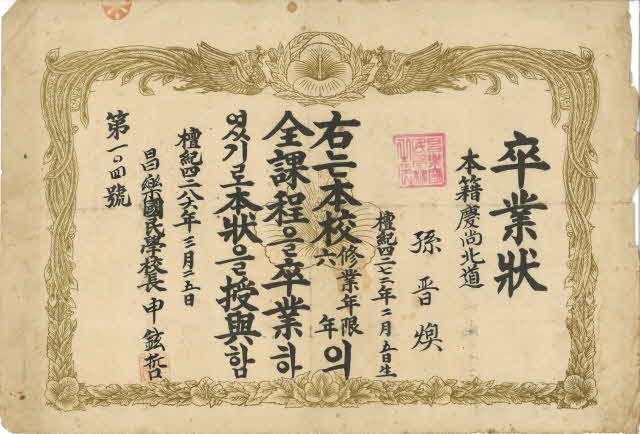 卒業狀
本籍慶尚北道
孫晋煥
檀紀四二七二年二月五日生
右는本校修業年限六年의
全課程을卒業하
였기로本狀을授與함
檀紀四二八六年三月二五日
昌樂國民學校長申鉉哲
第一〇四號